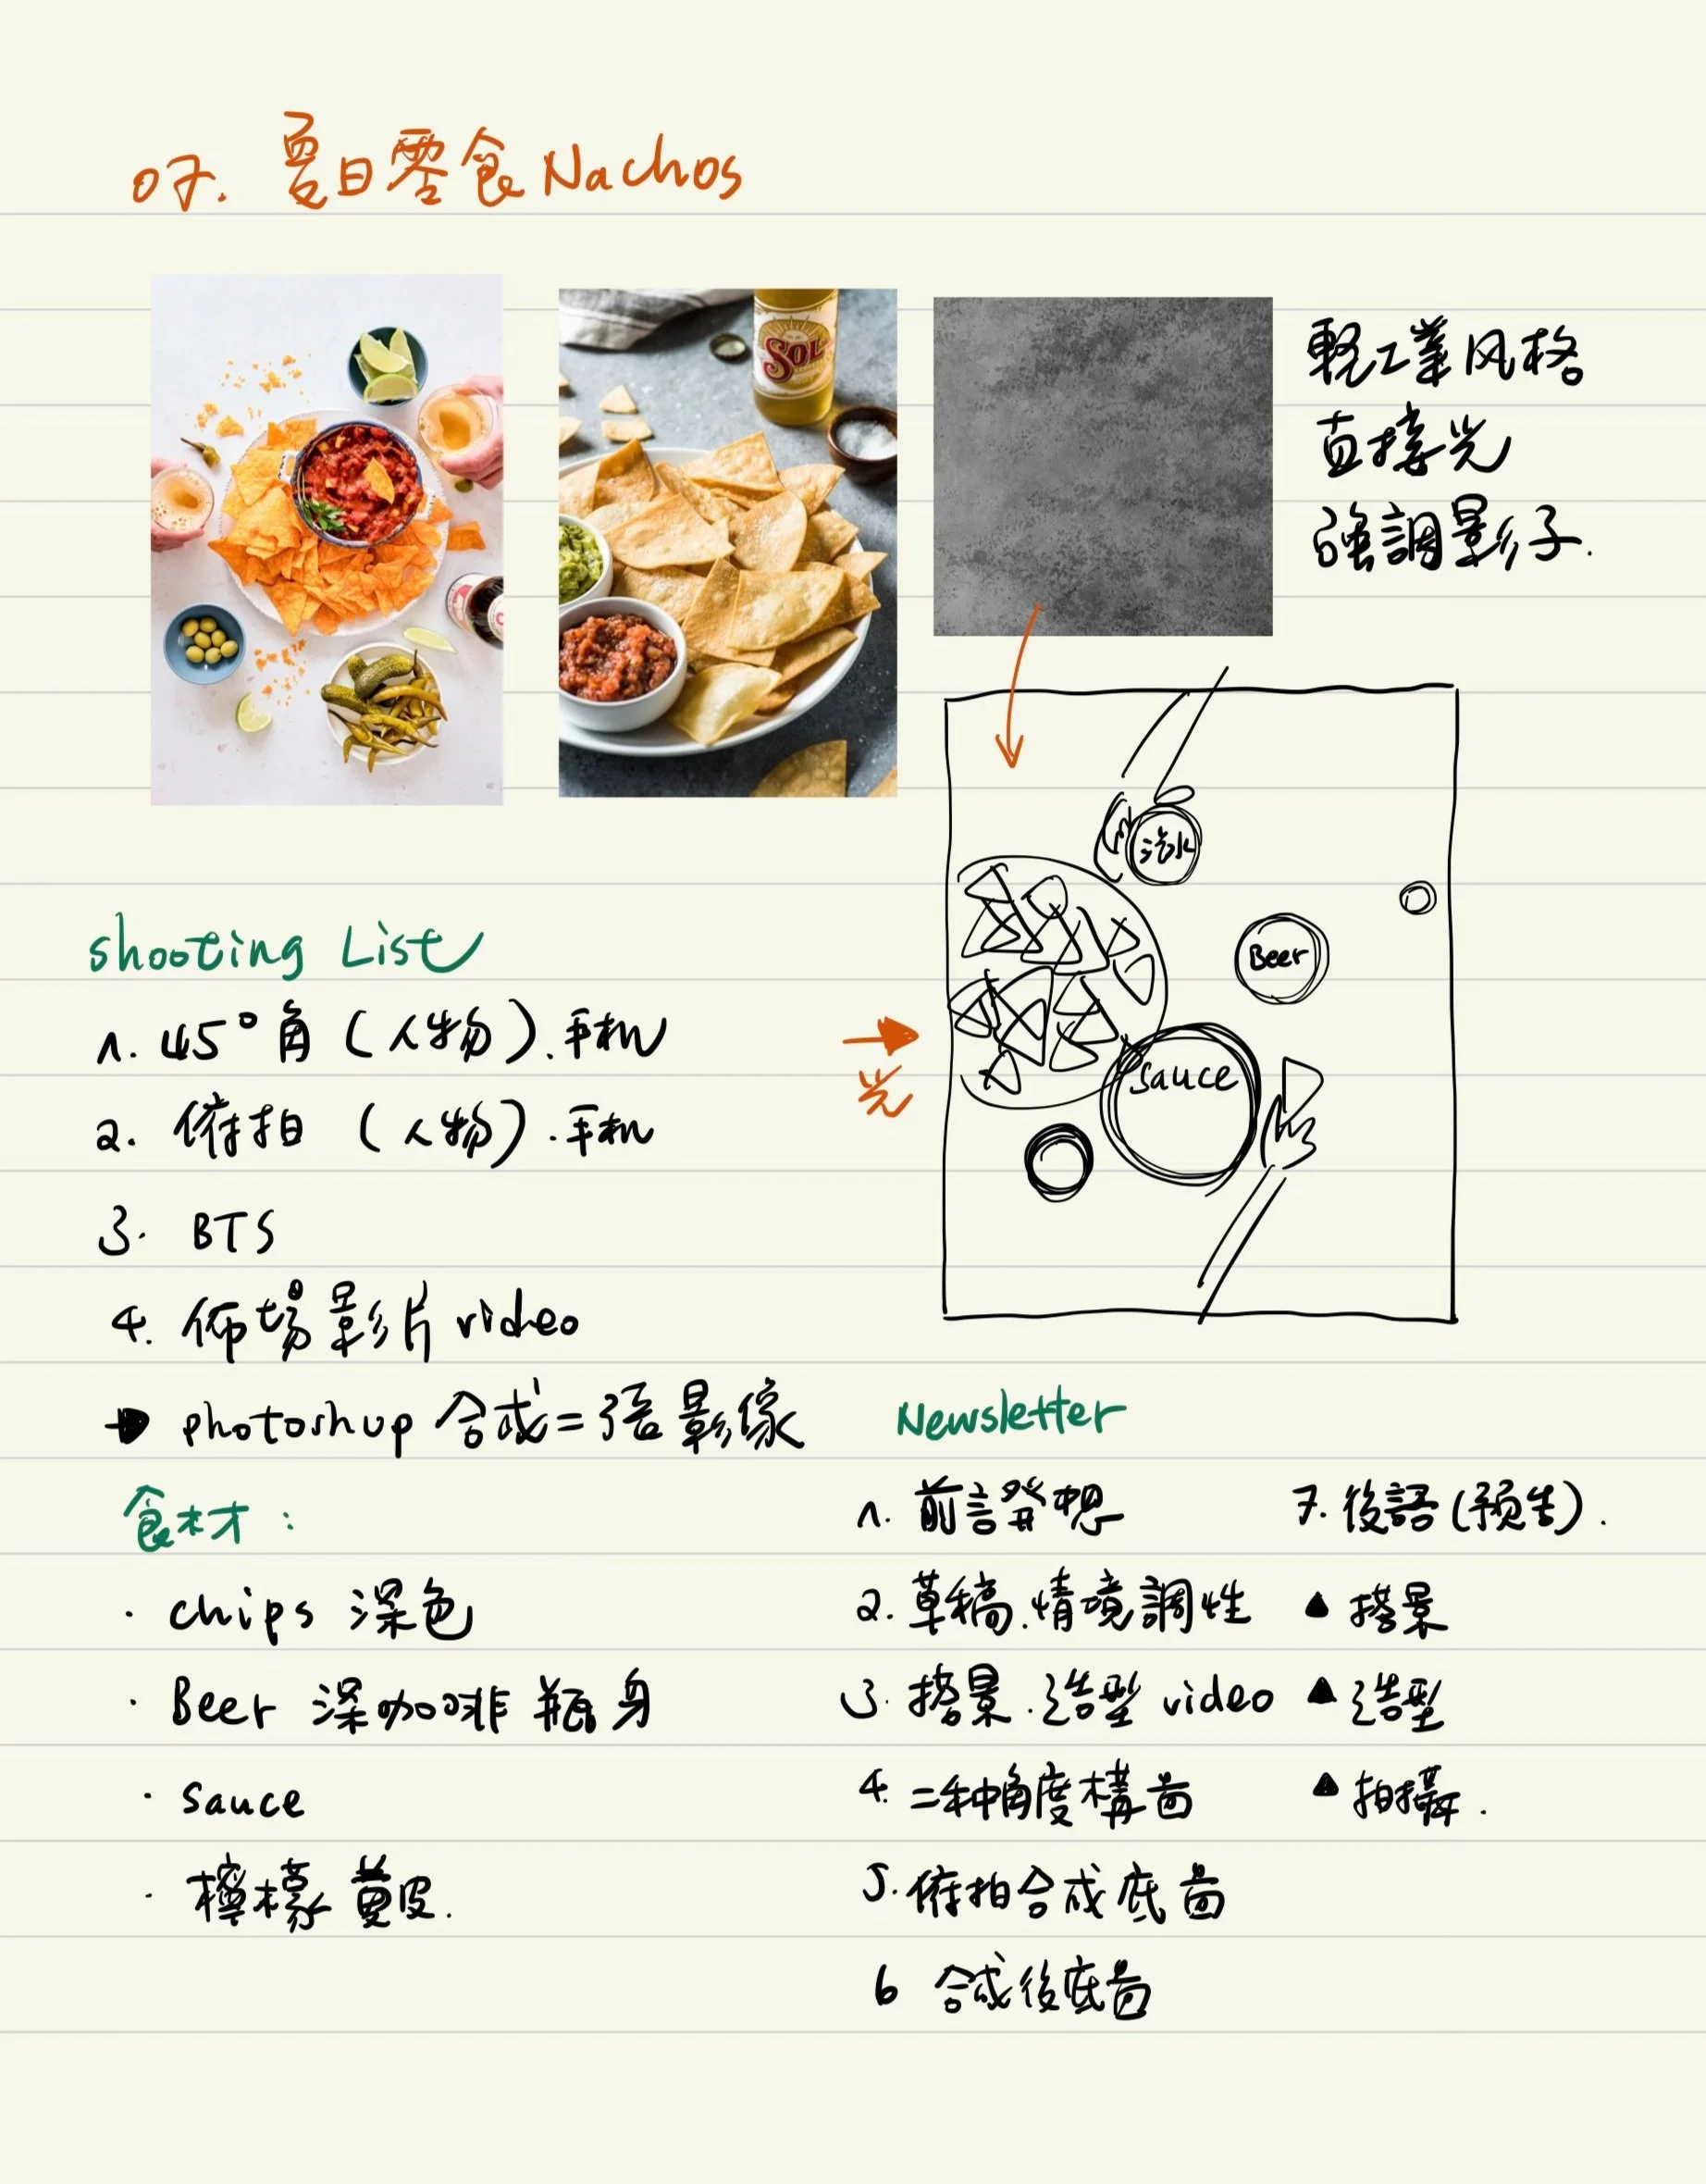 07. 夏日零食Nachos
SOL
輕工業风格
直接光
強調影子.
汽水
Beer
sauce
光
shooting List
1. 45°角 (人物).手机
2. 俯拍 (人物).手机
3. BTS
4. 佈場影片 video
→ photoshup 合成=3倍影像
食材:
· chips 深色
· Beer 深咖啡瓶身
· sauce
· 檸檬黄皮.
Newsletter
1. 前言發想
2. 草稿.情境調性
3. 搭景.造型 video
4. 二种角度構啚
5. 俯拍合成底啚
6 合成後底啚
7. 後語(预告).
▲ 搭景
▲ 造型
▲ 拍攝.